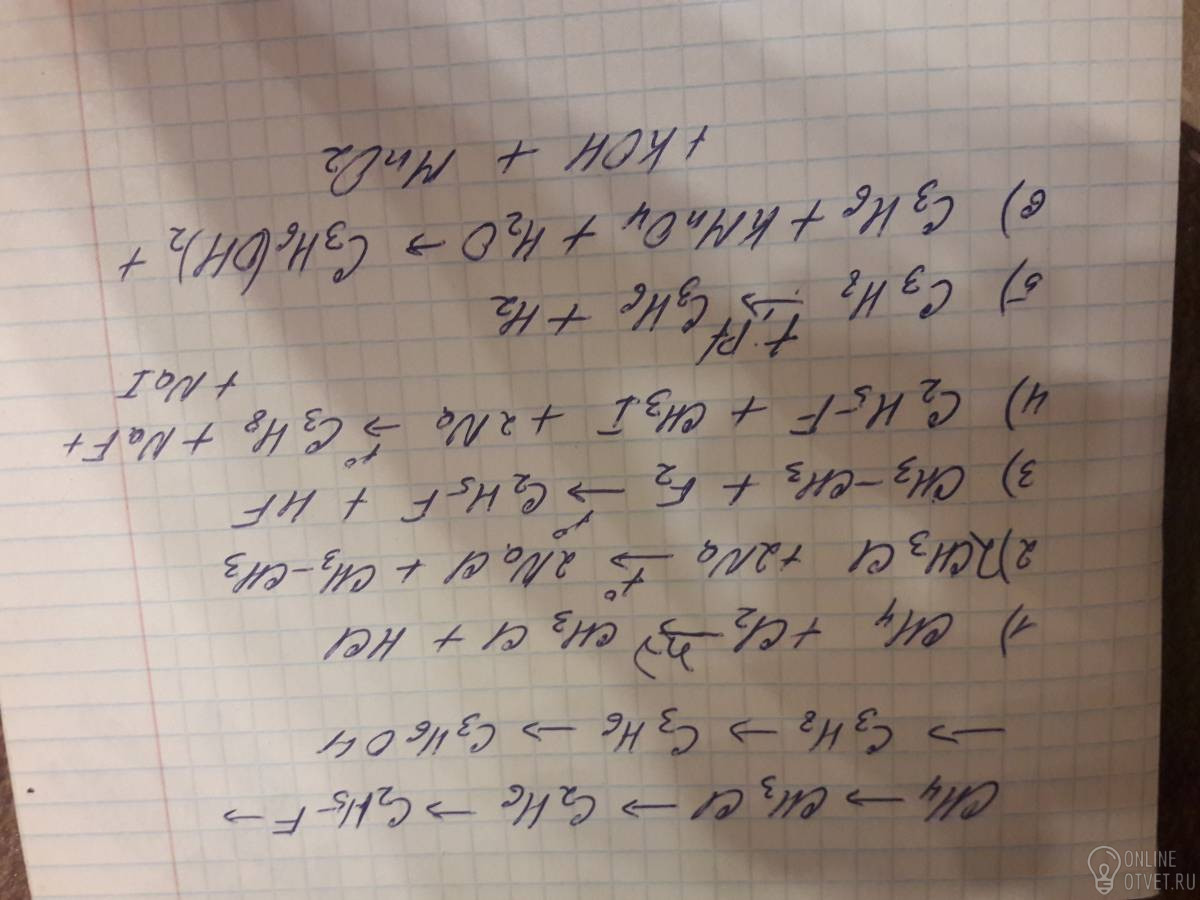 CH₄ → CH₃Cl → C₂H₆ → C₂H₅-F →
→ C₃H₈ → C₃H₆ → C₃H₆OH
1) CH₄ + Cl₂ →(hν) CH₃Cl + HCl
2) 2CH₃Cl + 2Na →(t°) 2NaCl + CH₃-CH₃
3) CH₃-CH₃ + F₂ →(t°) C₂H₅F + HF
4) C₂H₅-F + CH₃I + 2Na →(t°) C₃H₈ + NaF +
+ NaI
5) C₃H₈ →(t, Pt) C₃H₆ + H₂
6) C₃H₆ + KMnO₄ + H₂O → C₃H₆(OH)₂ +
+ KOH + MnO₂
ONLINE
OTVET.RU